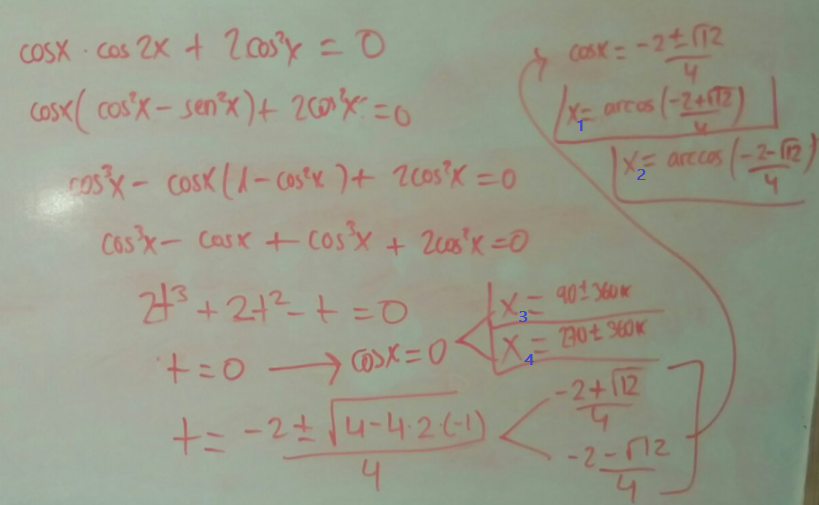 cosx · cos2x + 2cos²x = 0
cosx(cos²x - sen²x) + 2cos²x = 0
cos³x - cosx(1 - cos²x) + 2cos²x = 0
cos³x - cosx + cos³x + 2cos²x = 0
2t³ + 2t² - t = 0
t = 0 → cosx = 0
x₃ = 90 ± 360k
x₄ = 270 ± 360k
t = (-2 ± √(4 - 4·2·(-1)))/4
(-2 + √12)/4
(-2 - √12)/4
cosx = (-2 ± √12)/4
x₁ = arcos((-2 + √12)/4)
x₂ = arccos((-2 - √12)/4)